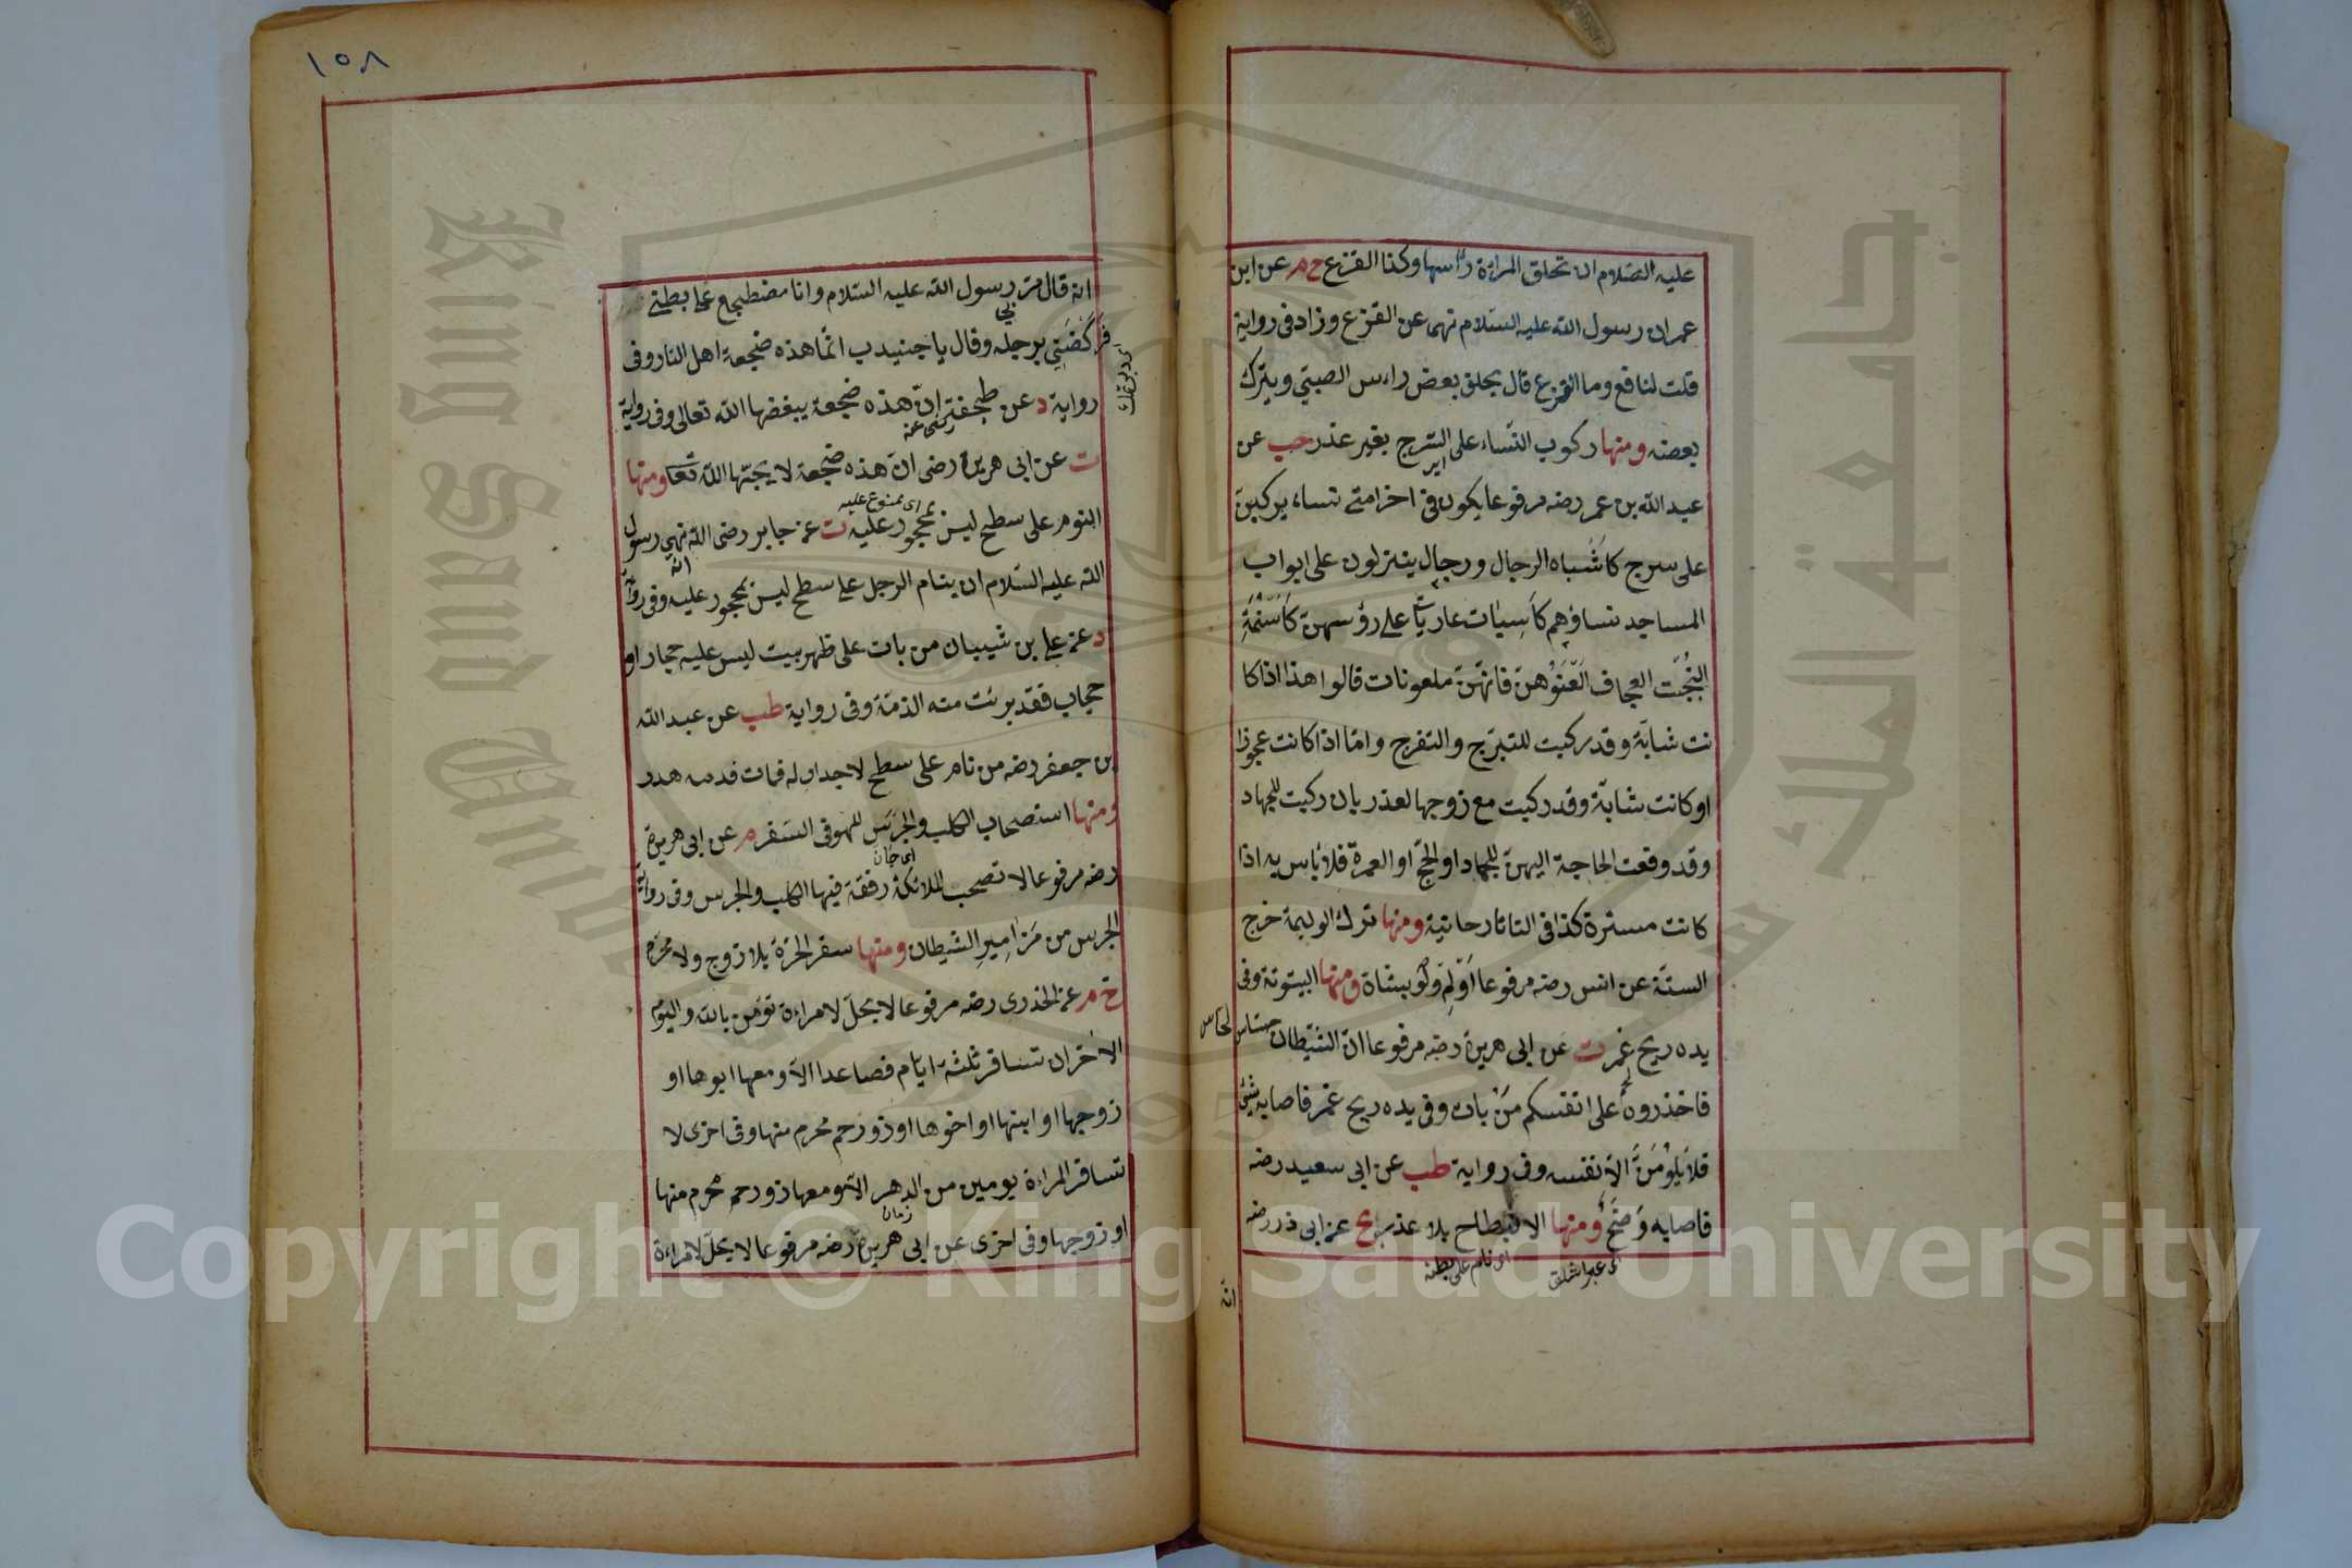 عليه الصلام ان تحلق المراءة رأسها وكذا القزع خ م عن ابن
عمران رسول الله عليه السلام نهى عن القزع وزاد فى رواية
قلت لنافع وما القزع قال يحلق بعض راءس الصبى ويترك
بعضه ومنها ركوب النساء على السرج بغير عذر حب عن
عبد الله بن عمر رضه مرفوعا يكون فى اخر امتى نساء يركبن
على سرج كاشباه الرجال ورجال ينزلون على ابواب
المساجد نساؤهم كاسيات عاريات على رؤسهن كاسنمة
البخت العجاف العنوهن فانهن ملعونات قالوا هذا اذا كا
نت شابة وقد ركبت للتبرج والتفرج واما اذا كانت عجوزا
او كانت شابة وقد ركبت مع زوجها لعذر بان ركبت للجهاد
وقد وقعت الحاجة اليهن للجهاد او الحج او العمرة فلا باس به اذا
كانت مسترة كذا فى التاتارخانية ومنها ترك الوليمة خرج
الستة عن انس رضه مرفوعا اولم ولو بشاة ومنها البيتوتة وفى
يده ريح غمر ت عن ابى هريرة رضه مرفوعا ان الشيطان حساس لحاس
فاحذروه على انفسكم من بات وفى يده ريح غمر فاصابه شئ
فلا يلومن الا نفسه وفى رواية طب عن ابى سعيد رضه
فاصابه وضح ومنها الانبطاح بلا عذر مج عن ابى ذر رضه
اى نام على بطنه
انه
١٥٨
انه قال مر بى رسول الله عليه السلام وانا مضطجع على بطنى
فركضنى برجله وقال يا جنيدب انما هذه ضجعة اهل النار وفى
رواية د عن طخفة ان هذه ضجعة يبغضها الله تعالى وفى رواية
رضى عنه
ت عن ابى هريرة رضى ان هذه ضجعة لا يحبها الله تعا ومنها
اى ممنوع عليه
النوم على سطح ليس بمحجور عليه ت عن جابر رضى الله نهى رسول
الله عليه السلام ان ينام الرجل على سطح ليس بمحجور عليه وفى رواية
د عن على بن شيبان من بات على ظهر بيت ليس عليه حجار او
حجاب فقد برئت منه الذمة وفى رواية طب عن عبد الله
بن جعفر رضه من نام على سطح لا جدار له فمات فدمه هدر
ومنها استصحاب الكلب والجرس للهو فى السفر م عن ابى هريرة
رضه مرفوعا لا تصحب الملائكة رفقة فيها الكلب والجرس وفى رواية
الجرس من مزامير الشيطان ومنها سفر الحرة بلا زوج ولا محرم
خ م عن الخدرى رضه مرفوعا لا يحل لامراءة تؤمن بالله واليوم
الاخر ان تسافر ثلثة ايام فصاعدا الا ومعها ابوها او
زوجها او ابنها او اخوها او ذو رحم محرم منها وفى اخرى لا
تسافر المراءة يومين من الدهر الا ومعها ذو رحم محرم منها
زمان
او زوجها وفى اخرى عن ابى هريرة رضه مرفوعا لا يحل لامراءة
King Saud University
جامعة الملك سعود
1957
Copyright © King Saud University